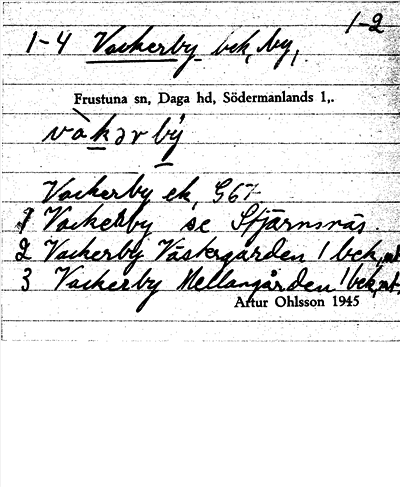 1-2
1-4 Vackerby bck, by,
Frustuna sn, Daga hd, Södermanlands l,.
vàkərbý
Vackerby ek, G67
1 Vackerby se Stjärnsnäs.
2 Vackerby Västergården 1 bck,
3 Vackerby Mellangården 1 bck,
Artur Ohlsson 1945